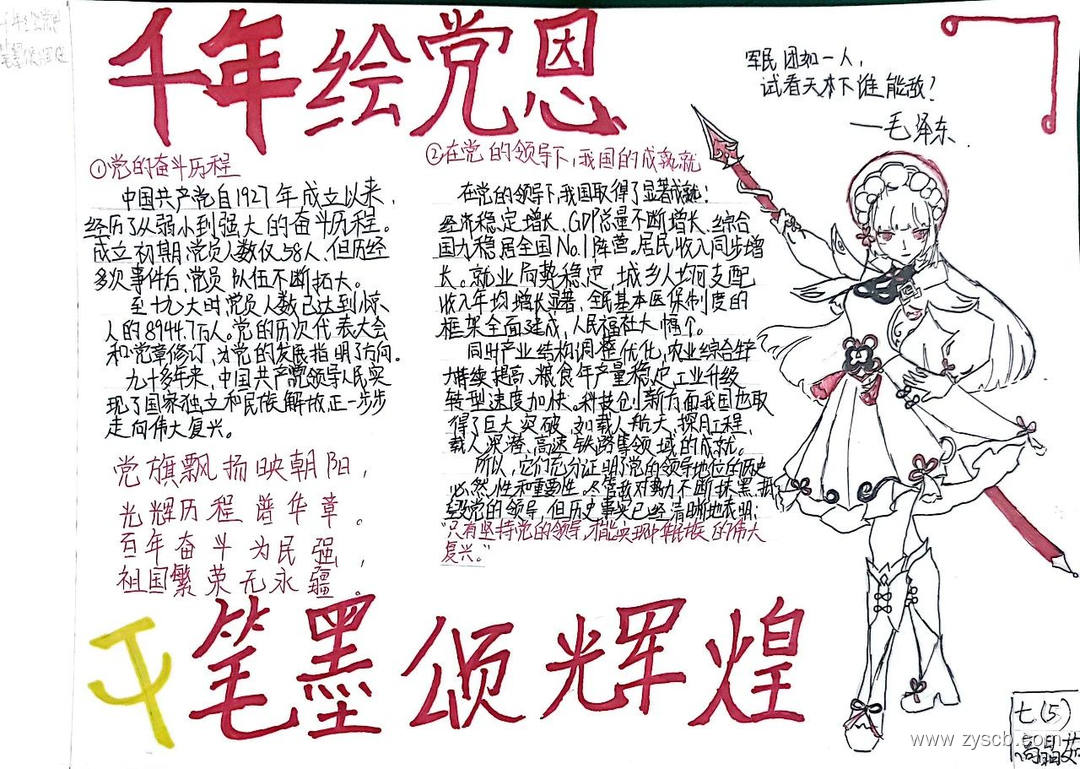 千年绘党恩
军民团如一人，
试看天下谁能敌？
——毛泽东
①党的奋斗历程
中国共产党自1927年成立以来，
经历了从弱小到强大的奋斗历程。
成立初期党员人数仅58人，但历经
多次事件后，党员队伍不断拓大。
至十九大时，党员人数已达到惊
人的8944.7万人。党的历次代表大会
和党章修订，对党的发展指明了方向。
九十多年来，中国共产党领导人民实
现了国家独立和民族解放正一步步
走向伟大复兴。
党旗飘扬映朝阳，
光辉历程普华章。
百年奋斗为民强，
祖国繁荣无永疆。
②在党的领导下，我国的成就
在党的领导下，我国取得了显著成就：
经济稳定增长、GDP总量不断增长、综合
国力稳居全国No.1阵营。居民收入同步增
长。就业局势稳定，城乡人均可支配
收入年均增长显著，全民基本医保制度的
框架全面建成，人民福祉大幅个。
同时产业结构调整优化，农业综合
持续提高、粮食年产量稳定，工业升级
转型速度加快。科技创新方面我国也取
得了巨大突破，如载人航天、探月工程、
载人深潜、高速铁路等领域的成就。
所以，它们充分证明了党的领导地位的历史
必然性和重要性。尽管敌对势力不断抹黑、
党的领导，但历史事实已经清晰地表明：
“只有坚持党的领导，才能实现中华民族的伟大
复兴。”
笔墨颂辉煌
七(5)
高晶茹
www.zyscb.com